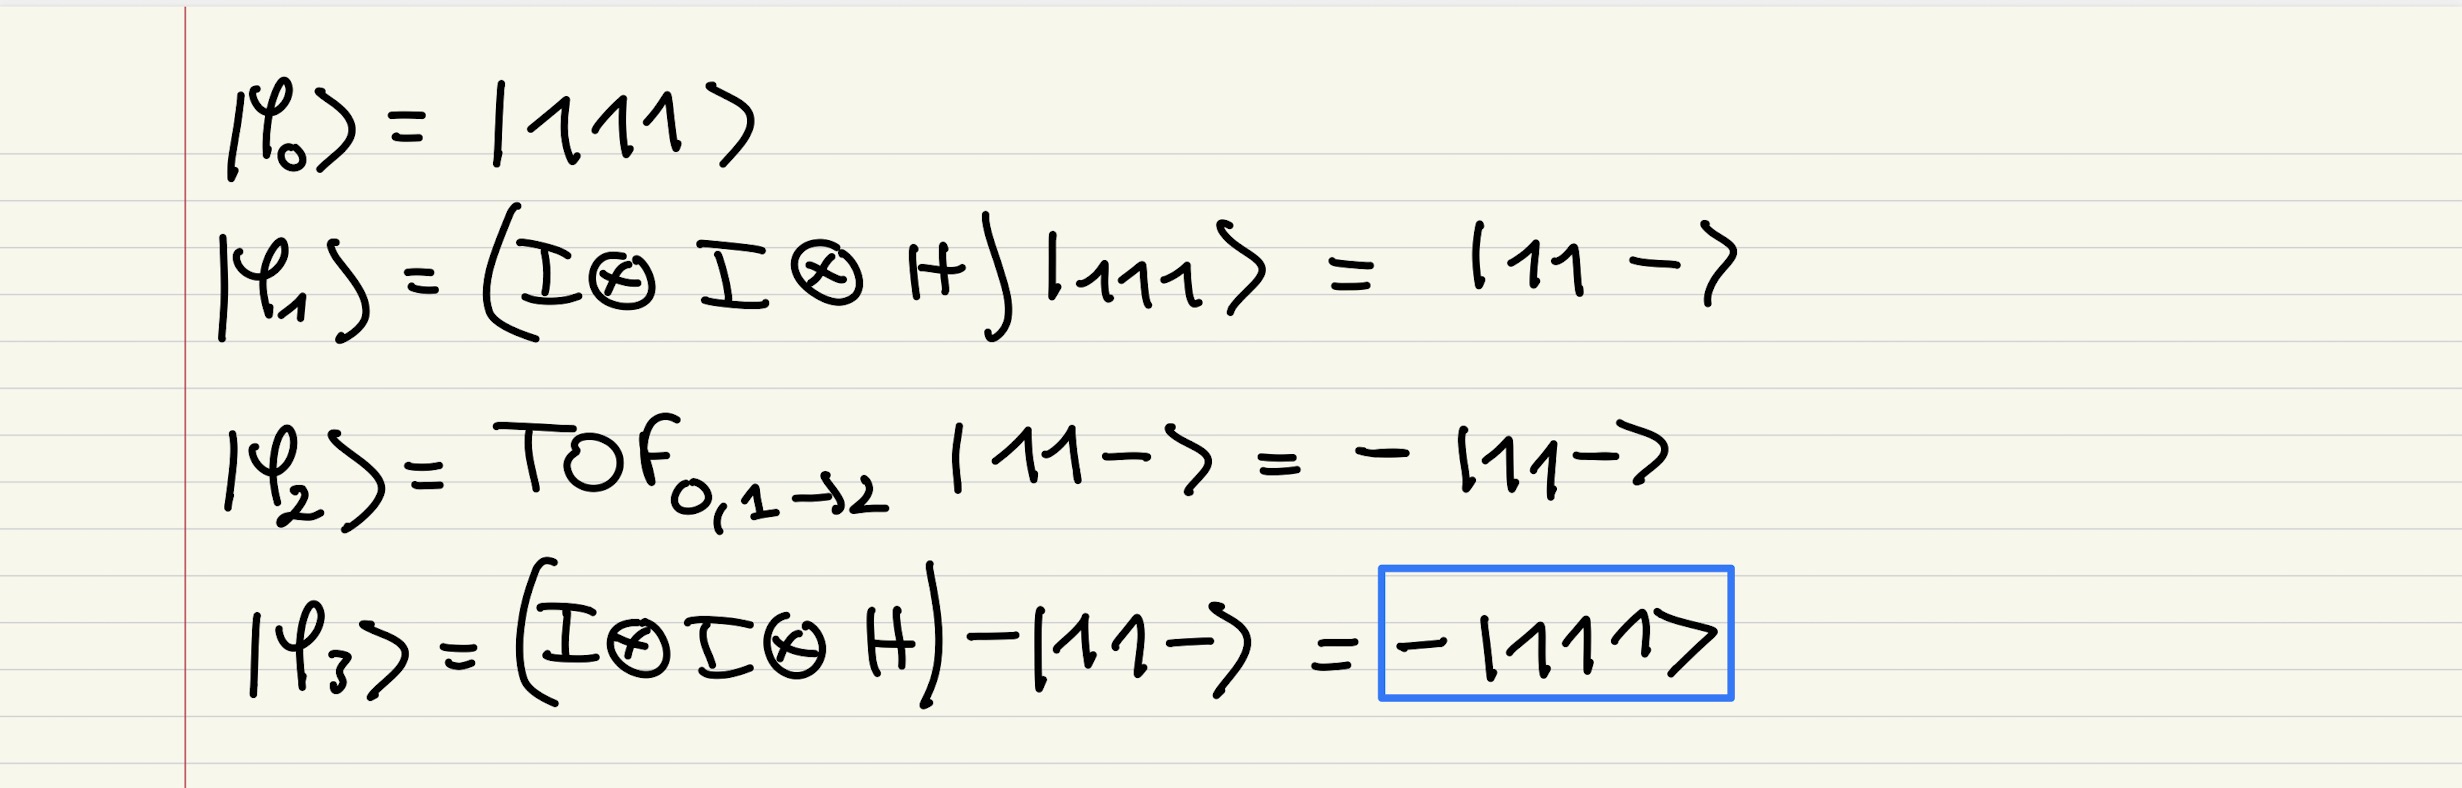 |φ₀⟩ = |111⟩
|φ₁⟩ = (I ⊗ I ⊗ H) |111⟩ = |11 -⟩
|φ₂⟩ = TOF₀,₁→₂ |11-⟩ = - |11-⟩
|φ₃⟩ = (I⊗I⊗H) -|11-⟩ = - |111⟩